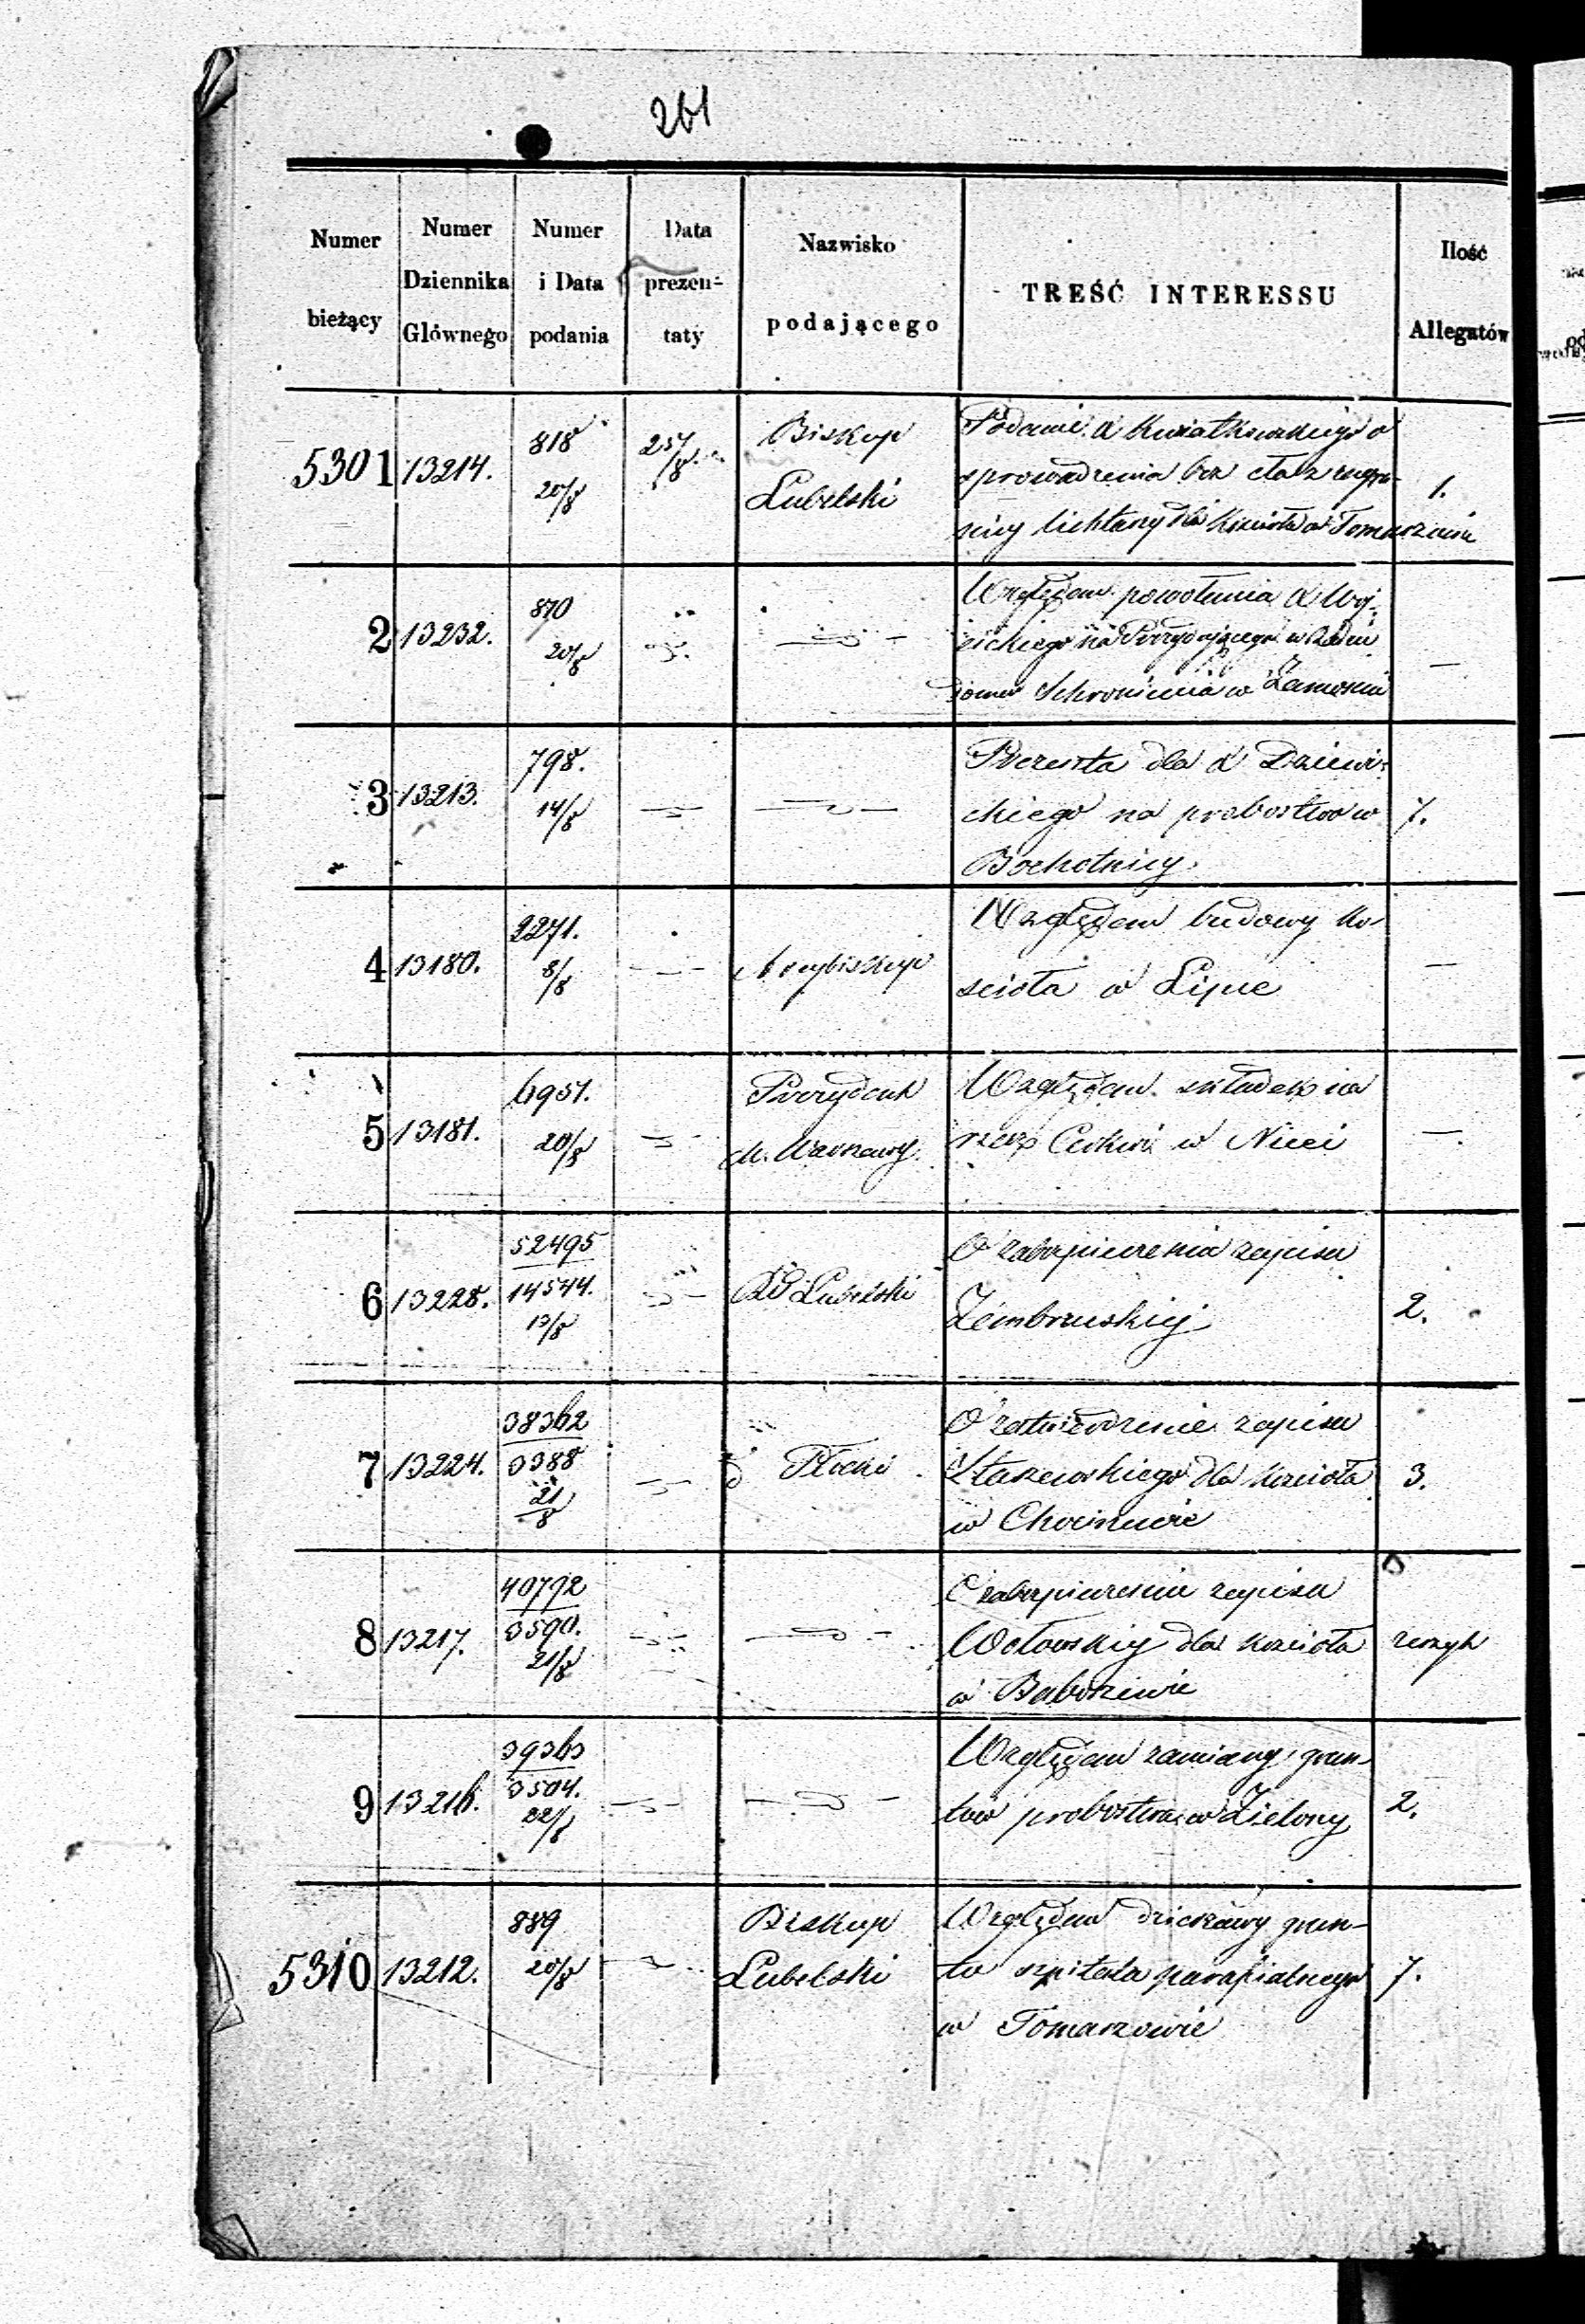 261
Numer bieżący
Numer Dziennika Głównego
Numer i Data podania
Data prezentaty
Nazwisko podającego
TREŚĆ INTERESSU
Ilość Allegatów
5301 13214. 818 20/8 25/8 Biskup Lubelski
Podanie X Kwiatkowskiego o
sprowadzenia bez cła z zagra-
nicy lichtarzy dla Kościoła w Tomaszowie
1.
2 13232. 870 20/8 — " —
Względem powołania X Woj-
cickiego na Prezydującego w Radzie
domu Schronienia w Zamościu
—
3 13213. 798. 14/8 — " — — " —
Prezenta dla X Dziewi-
ckiego na probostwo w
Bochotnicy.
7.
4 13180. 2271. 8/8 — " — Arcybiskup
Względem budowy Ko-
scioła w Lipie
—
5 13181. 6951. 20/8 — " — Prezydent M. Warszawy.
Względem składek na
rzecz Cerkwi w Nicei
—
6 13228. 52495 14544. 13/8 — " — RG Lubelski
O zabezpieczenia zapisu
Zembrzuskiej
2.
7 13224. 38362 3388 21/8 — " — d Płocki
O zatwierdzenie zapisu
Staszewskiego dla Kościoła
w Chocinie
3.
8 13217. 40792 3590. 21/8 — " — — " —
O zabezpieczenia zapisu
Wołowskiej dla Kościoła
w Baboszewie
zeszyt
9 13216. 39363 3504. 22/8 — " — — " —
Względem zamiany grun-
tów probostwa w Zielony
2.
5310 13212. 889 20/8 — " — Biskup Lubelski
Względem dzierżawy grun-
tu szpitala parafialnego
w Tomaszowie
7.